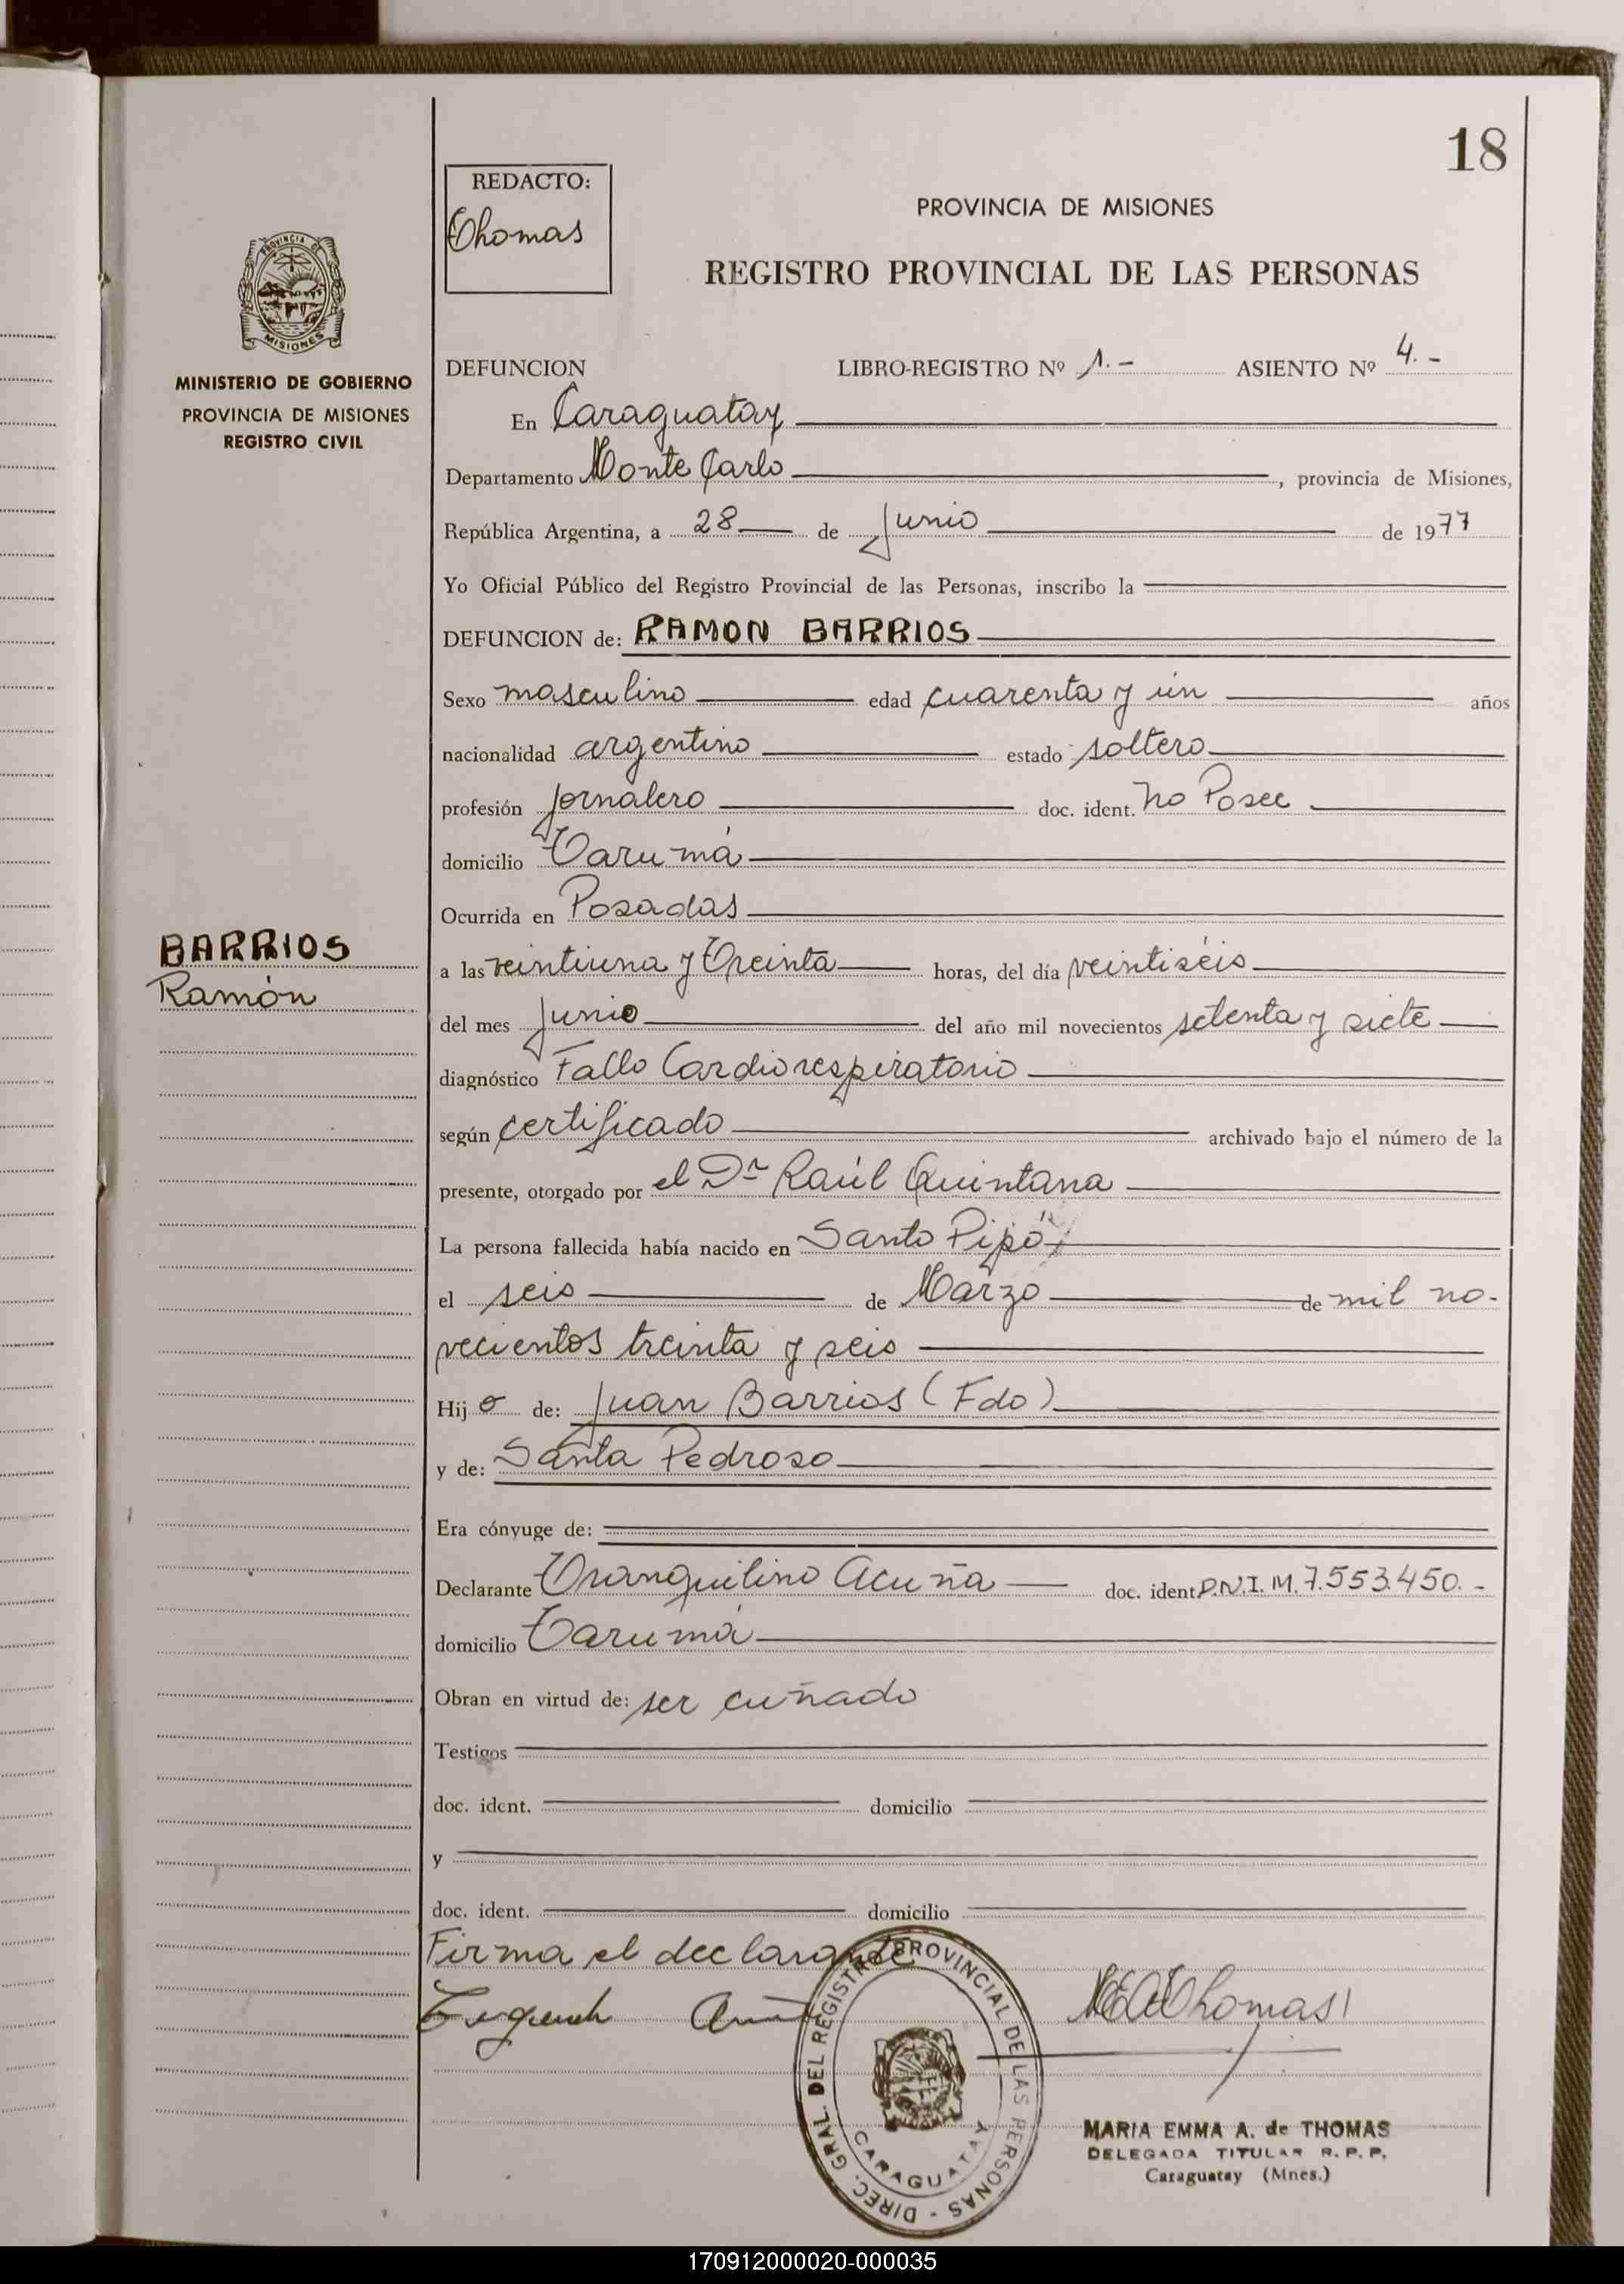 18
REDACTO:
Thomas
PROVINCIA DE MISIONES
REGISTRO PROVINCIAL DE LAS PERSONAS
PROVINCIA DE
MISIONES
MINISTERIO DE GOBIERNO
PROVINCIA DE MISIONES
REGISTRO CIVIL
DEFUNCION LIBRO-REGISTRO Nº 1.- ASIENTO Nº 4.-
En Caraguatay
Departamento Monte Carlo, provincia de Misiones,
República Argentina, a 28 de Junio de 1977
Yo Oficial Público del Registro Provincial de las Personas, inscribo la
DEFUNCION de: RAMON BARRIOS
Sexo masculino edad cuarenta y un años
nacionalidad argentino estado soltero
profesión jornalero doc. ident. No Posee
domicilio Tarumá
Ocurrida en Posadas
BARRIOS
Ramón
a las veintiuna y Treinta horas, del día veintiséis
del mes Junio del año mil novecientos setenta y siete
diagnóstico Fallo Cardiorespiratorio
según certificado archivado bajo el número de la
presente, otorgado por el Dr Raúl Quintana
La persona fallecida había nacido en Santo Pipó
el seis de Marzo de mil no-
vecientos treinta y seis
Hijo de: Juan Barrios (Fdo)
y de: Santa Pedroso
Era cónyuge de:
Declarante Tranquilino Acuña doc. ident. D.N.I. M. 7.553.450.-
domicilio Tarumá
Obran en virtud de: ser cuñado
Testigos
doc. ident. domicilio
y
doc. ident. domicilio
Firma el declarante
MEA de Thomas
DIREC. GRAL. DEL REGISTRO PROVINCIAL DE LAS PERSONAS -
CARAGUATAY
MARIA EMMA A. de THOMAS
DELEGADA TITULAR R. P. P.
Caraguatay (Mnes.)
170912000020-000035